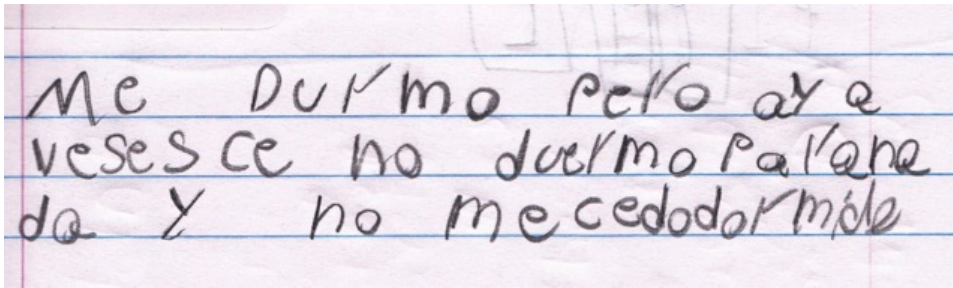 Me Durmo pero aya
veses ce no duermo parana
da y no mecedodormida